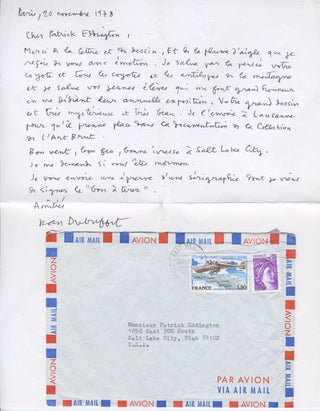 Paris, 20 novembre 1978
Cher Patrick Eddington,
Merci de la lettre et du dessin, Et de la plume d'aigle que je
reçois de vous avec émotion. Je salue par la pensée votre
coyote et tous les coyotes et les antilopes de la montagne
et je salue vos jeunes élèves qui me font grand honneur
en me dédiant leur annuelle exposition. Votre grand dessin
est très mystérieux et très beau. Je l'envoie à Lausanne
pour qu'il prenne place dans la Documentation de la Collection
de l'Art Brut.
Bon vent, bon feu, bonne ivresse à Salt Lake City.
Je me demande si vous êtes mormon.
Je vous envoie une épreuve d'une sérigraphie dont je viens
de signer le "bon à tirer".
Amitiés
Jean Dubuffet
AIR MAIL AVION AIR MAIL AVION
FRANCE
1,50
FRANCE
Monsieur Patrick Eddington
1050 East 300 South
Salt Lake City, Utah 84102
U.S.A.
PAR AVION
VIA AIR MAIL
AVION AIR MAIL AVION AIR MAIL